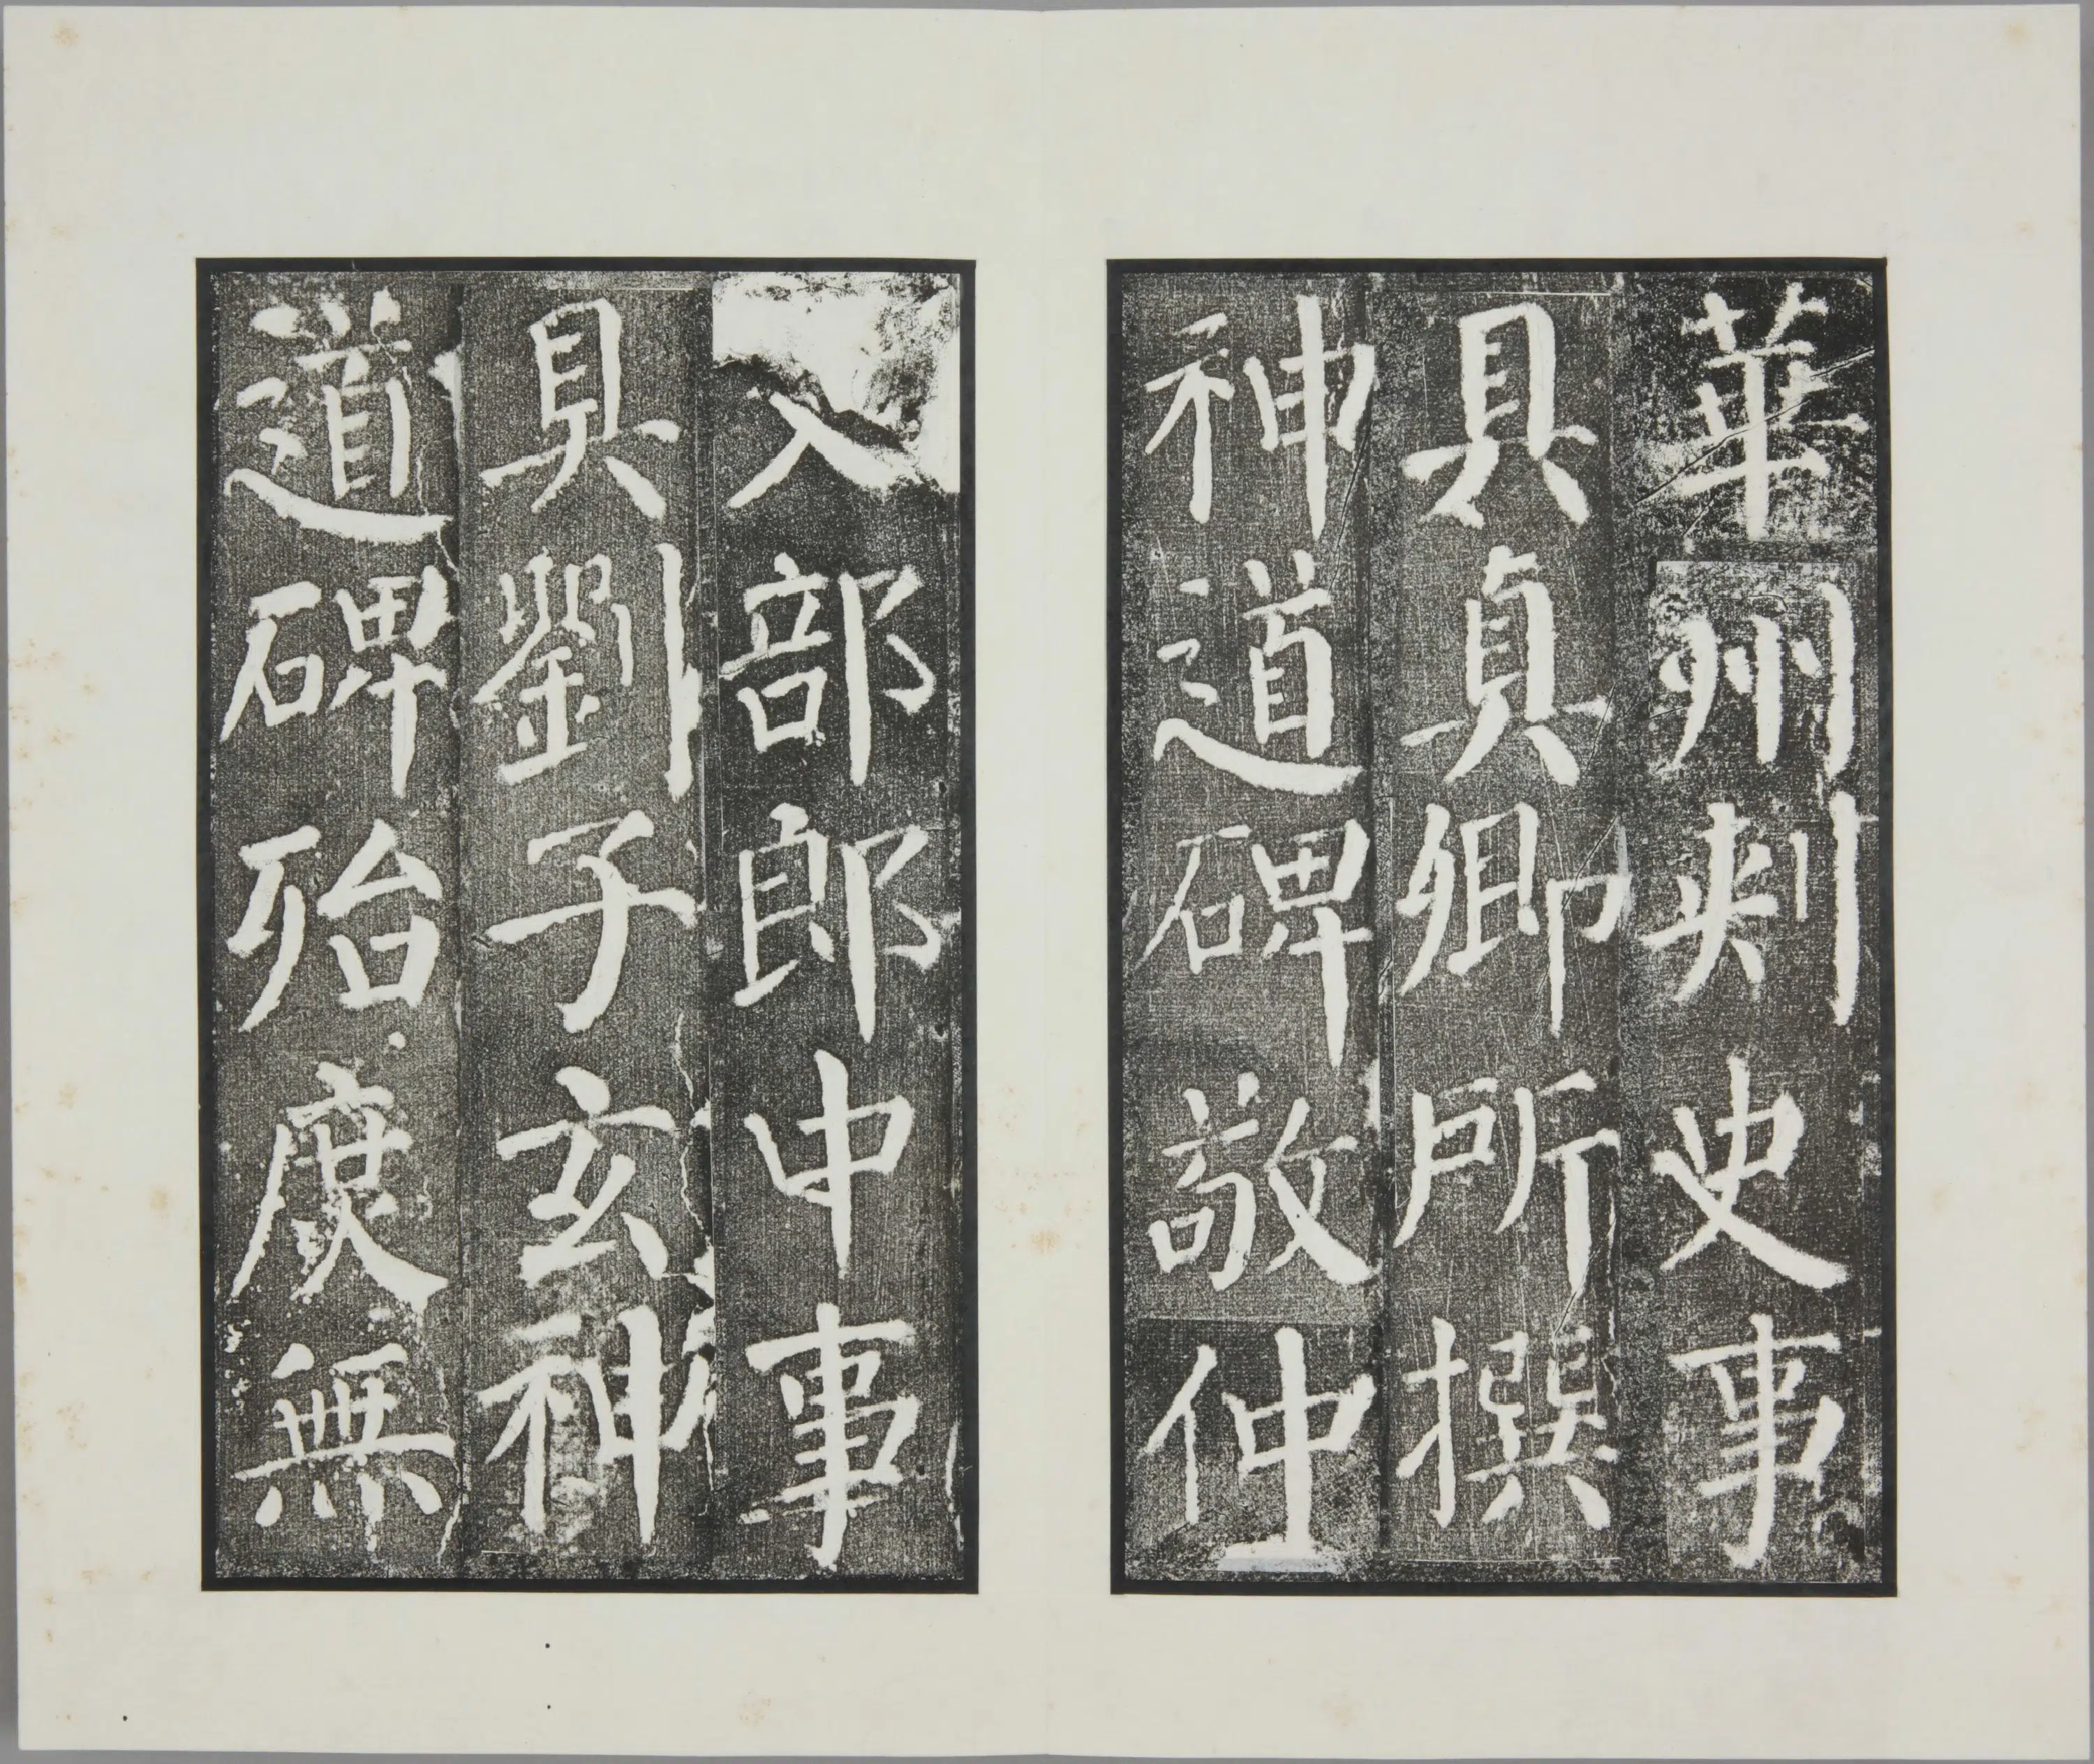 華州刾史事
具真卿所撰
神道碑敬仲
部郎中事
具劉子玄神
道碑殆庶無